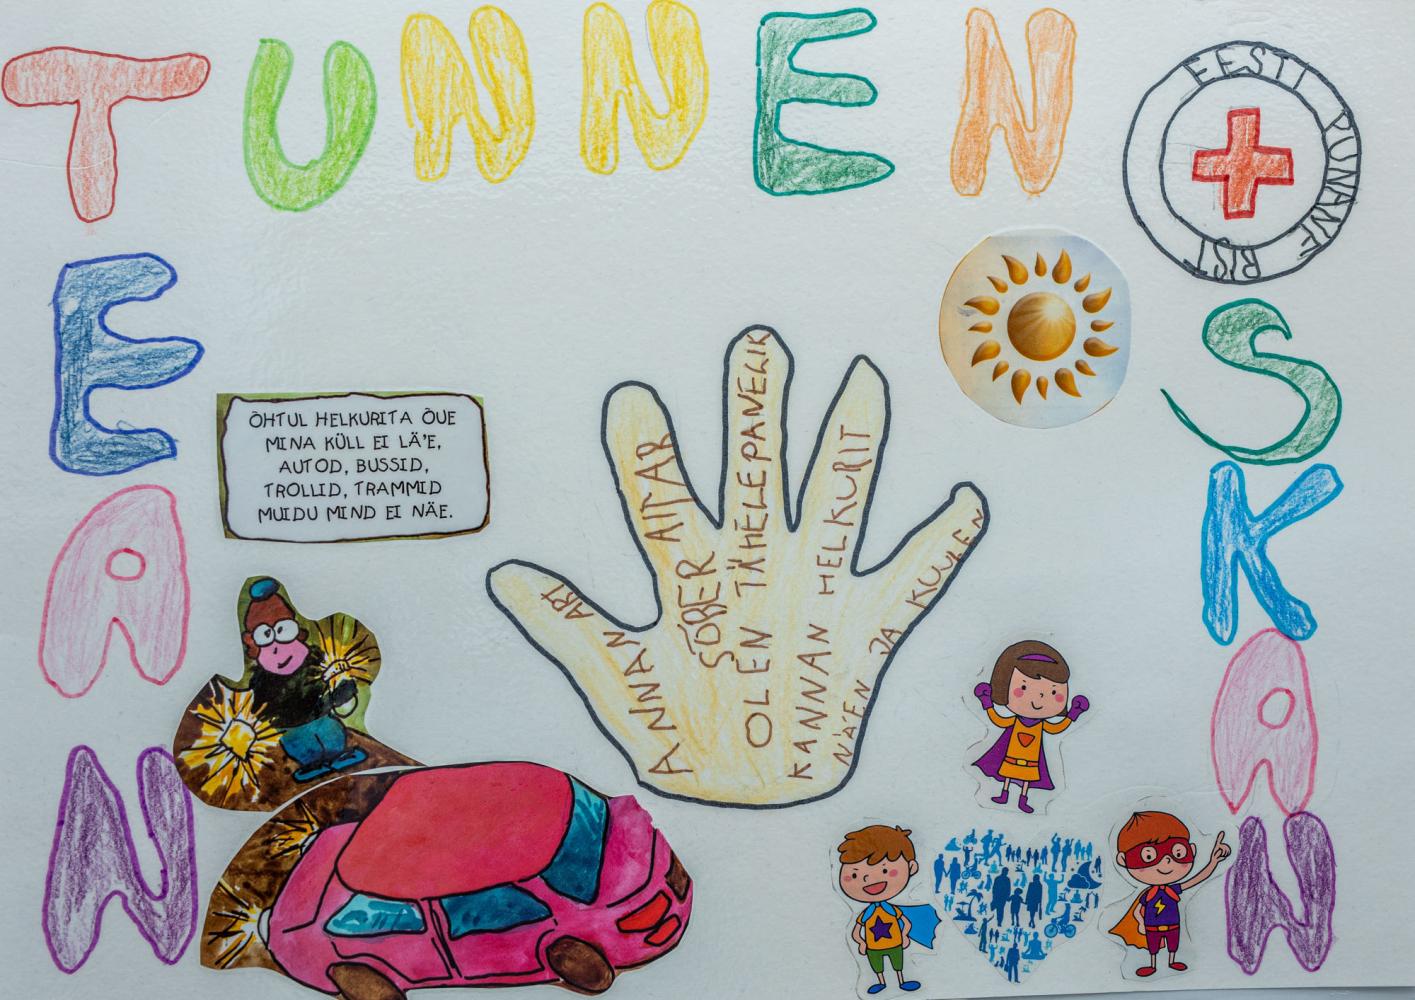 TUNNEN
TEAN
OSKAN
EESTI PUNANE RIST
ÕHTUL HELKURITA ÕUE
MINA KÜLL EI LÄ'E,
AUTOD, BUSSID,
TROLLID, TRAMMID
MUIDU MIND EI NÄE.
ANNAN ABI
SÕBER AITAB
OLEN TÄHELEPANELIK
KANNAN HELKURIT
NÄEN JA KUULEN